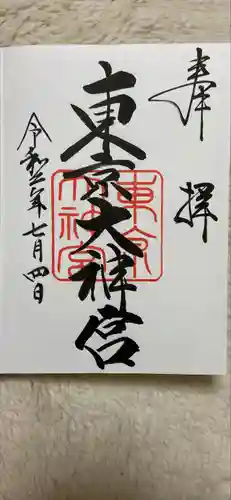 奉拝
東京大神宮
東京大神宮
令和年七月四日